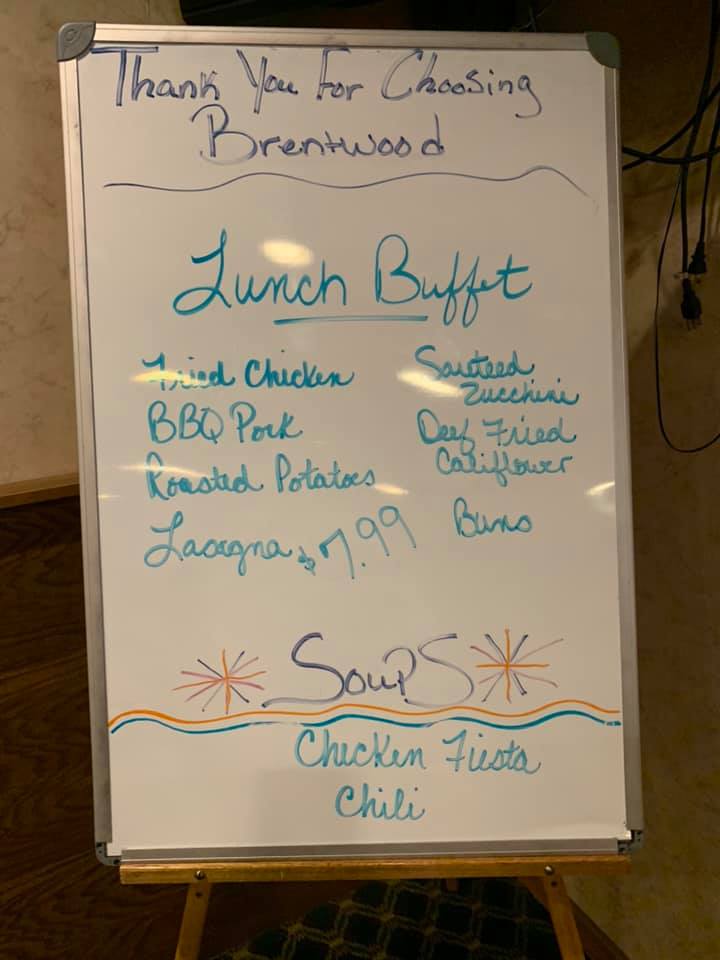 Thank You For Choosing
Brentwood
Lunch Buffet
Fried Chicken
BBQ Pork
Roasted Potatoes
Lasagna $7.99
Sauteed
Zucchini
Deep Fried
Califlower
Buns
Soups
Chicken Fiesta
Chili